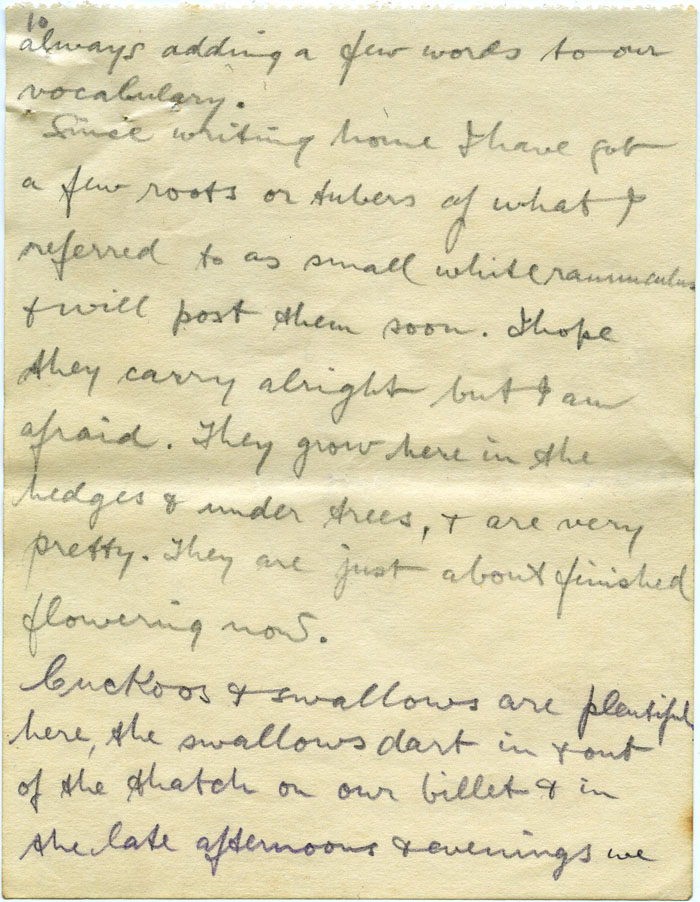 10
always adding a few words to our
vocabulary.
Since writing home I have got
a few roots or tubers of what I
referred to as small white rannunculus
& will post them soon. I hope
they carry alright but I am
afraid. They grow here in the
hedges & under trees, & are very
pretty. They are just about finished
flowering now.
Cuckoos & swallows are plentiful
here, the swallows dart in & out
of the thatch on our billet & in
the late afternoons & evenings we